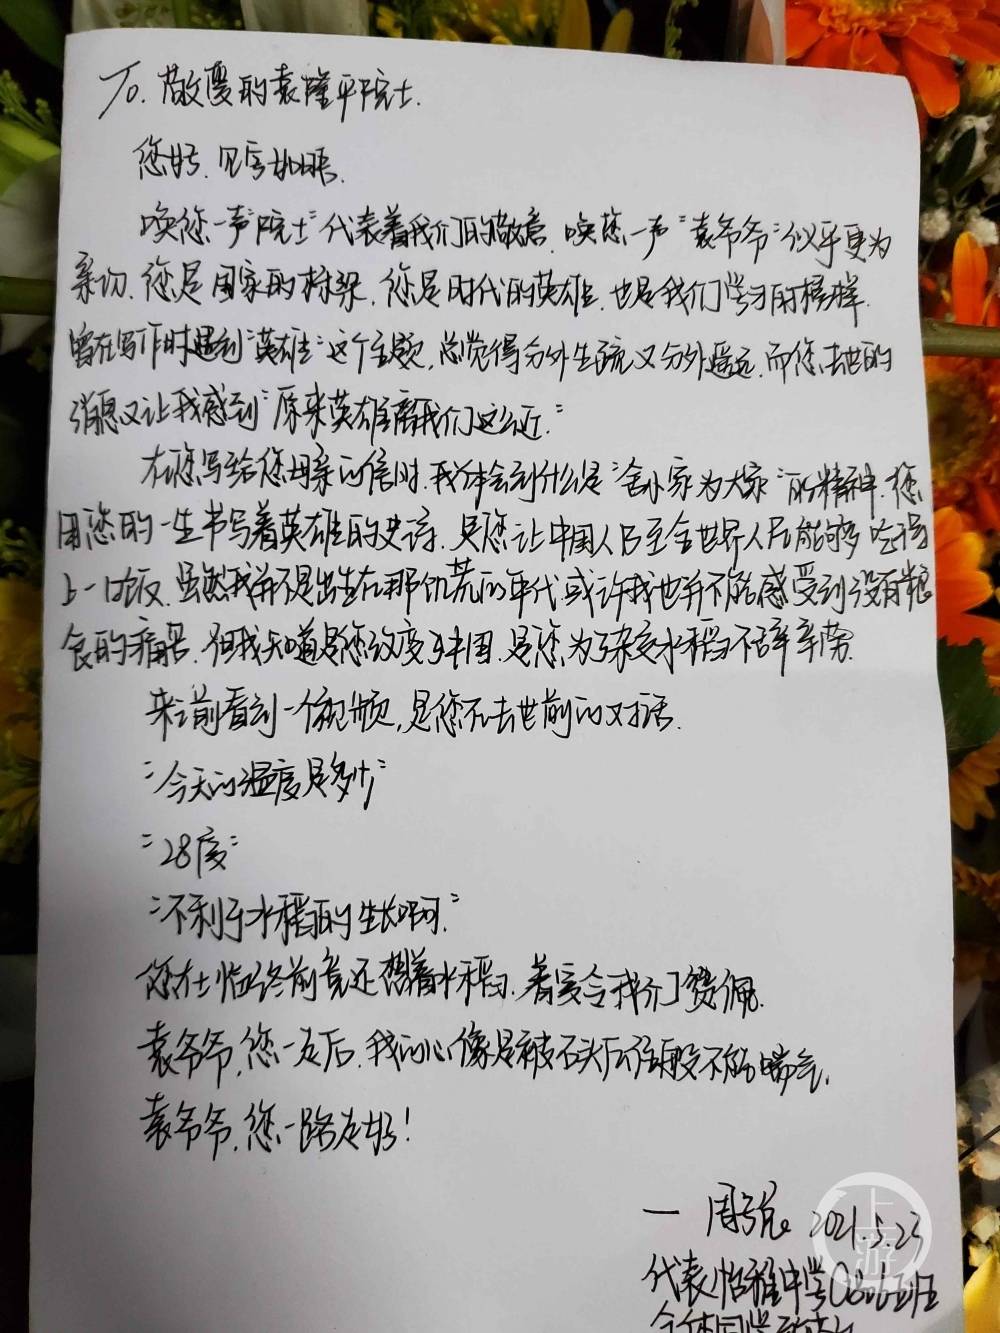 To. 敬爱的袁隆平院士.
您好. 见字如晤.
唤您一声"院士"代表着我们的敬意. 唤您一声"袁爷爷"似乎更为
亲切. 您是国家的栋梁. 您是时代的英雄. 也是我们学习的榜样.
曾在写作时遇到"英雄"这个主题, 总觉得分外生疏又分外遥远. 而您去世的
消息又让我感到"原来英雄离我们这么近."
在您写给您母亲的信时. 我体会到什么是"舍小家为大家"的精神. 您
用您的一生书写着英雄的史诗. 是您让中国人乃至全世界人民能够吃得
上一口饭. 虽然我并不是出生在那饥荒的年代 或许我也并不能感受到没有粮
食的痛苦. 但我知道是您改变了中国. 是您为了杂交水稻不辞辛劳.
来之前看到一个视频, 是您在去世前的对话.
"今天的温度是多少"
"28度"
"不利于水稻的生长啊."
您在临终前竟还想着水稻. 着实令我们赞佩.
袁爷爷, 您一走后. 我的心像是被石头压住般不能喘气.
袁爷爷, 您一路走好!
— 周 2021.5.23
代表怡雅中学 班
上游